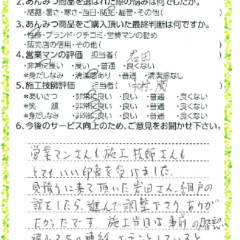 2.あんみつ商品を選ばれた際の悩みは何でしたか。
・結露・暑い寒さ・当日・防犯・経営・その他(
3.あんみつ商品をご購入頂いた最終判断は何ですか。
・性格・ブランド・クチコミ・営業マンの勧め
・販売店の信用・その他(
4.営業マンの評価 担当者(岩田
・非常に良い・良い・普通・良くない
*身だしなみ ・清潔感あり・普通・清潔感なし
5.施工技師評価 担当者(
*あいさつ ・非常に良い・良い・普通・良くない
*笑顔 ・非常に良い・良い・普通・良くない
*身だしなみ・非常に良い・良い・普通・良くない
6.今後のサービス向上のため、ご意見をお聞かせ下さい。
営業マンさんも施工技師さんも
とてもいい印象を受けました。
見積りに来て頂いた岩田さん、網戸の
話をしたら、進んで調整下さり ありが
たかったです。施工当日は事前の確認